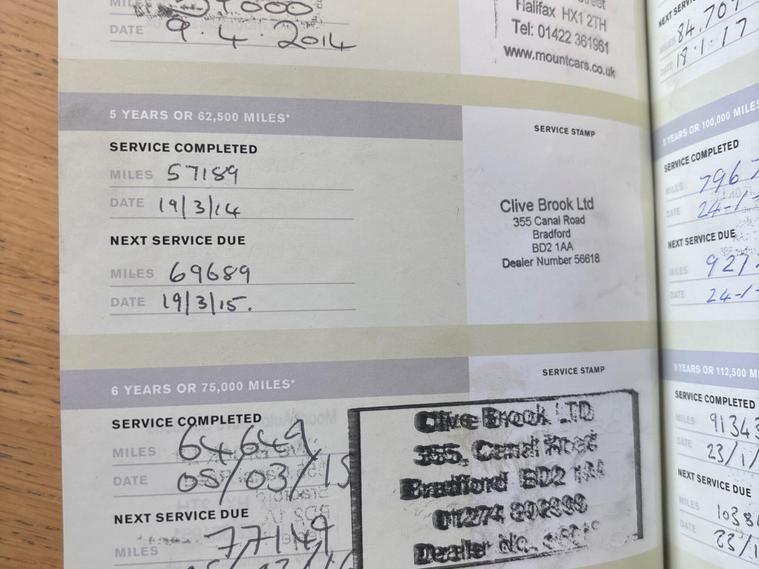 MILES
DATE 9.4.2014
Halifax HX1 2TH
Tel: 01422 361961
www.mountcars.co.uk
5 YEARS OR 62,500 MILES*
SERVICE STAMP
SERVICE COMPLETED
MILES 57189
DATE 19/3/14
NEXT SERVICE DUE
MILES 69689
DATE 19/3/15.
Clive Brook Ltd
355 Canal Road
Bradford
BD2 1AA
Dealer Number 56618
6 YEARS OR 75,000 MILES*
SERVICE STAMP
SERVICE COMPLETED
MILES 64649
DATE 05/03/15
NEXT SERVICE DUE
MILES 77149
Clive Brook LTD
355, Canal Road
Bradford BD2 1AA
01274
Dealer No.
NEXT SERVICE
MILES 84,707
DATE 18.1.17
YEARS OR 100,000 MILES
SERVICE COMPLETED
MILES 7967
DATE 24-1-
NEXT SERVICE DUE
MILES 921
DATE 24-1-
YEARS OR 112,500 M
SERVICE COMPLETED
MILES 91343
DATE 23/1/
NEXT SERVICE DUE
MILES 1038
DATE 23/1